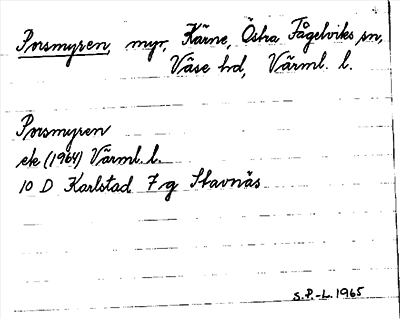 Porsmyren, myr, Kärne, Östra Fågelviks sn,
Väse hd, Värml. l.
Porsmyren
ek (1964) Värml. l.
10 D Karlstad 7 g Stavnäs
S.P.-L. 1965